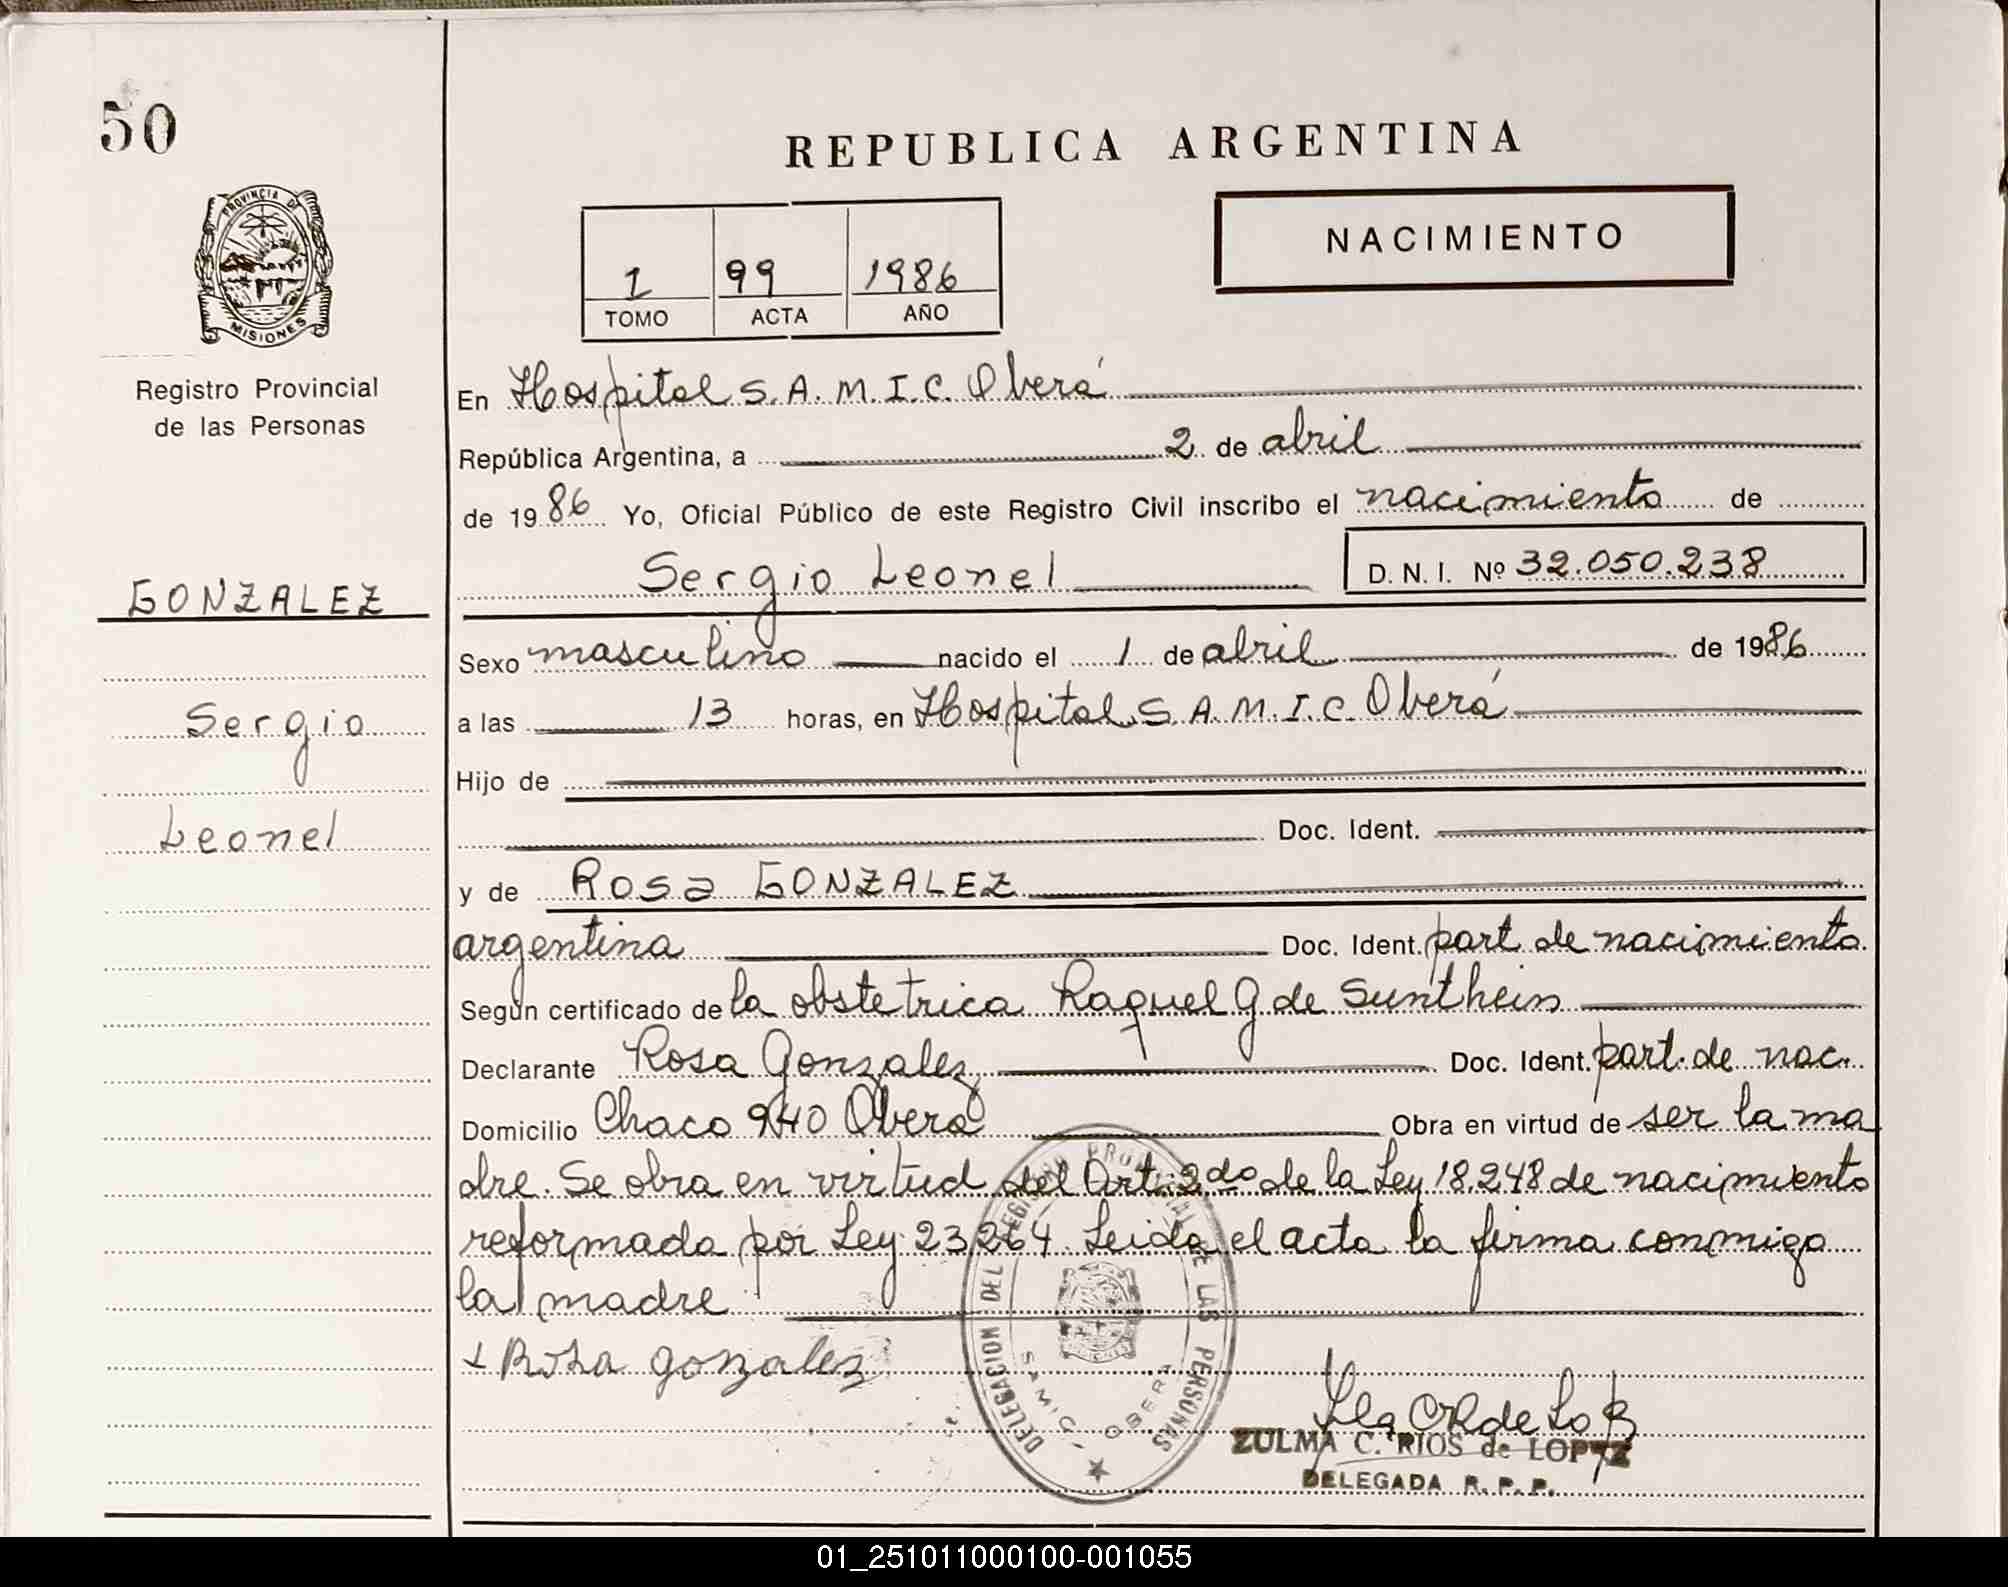 50
REPUBLICA ARGENTINA
PROVINCIA DE
MISIONES
NACIMIENTO
1 99 1986
TOMO ACTA AÑO
Registro Provincial
de las Personas
En Hospital S.A.M.I.C. Oberá
República Argentina, a 2 de abril
de 1986 Yo, Oficial Público de este Registro Civil inscribo el nacimiento de
Sergio Leonel D. N. I. Nº 32.050.238
GONZALEZ
Sexo masculino nacido el 1 de abril de 1986
Sergio
a las 13 horas, en Hospital S.A.M.I.C. Oberá
Hijo de
Leonel
Doc. Ident.
y de Rosa GONZALEZ
argentina Doc. Ident. part de nacimiento
Según certificado de la obstetrica Raquel G de Sunthein
Declarante Rosa Gonzalez Doc. Ident. part. de nac.
Domicilio Chaco 940 Oberá Obra en virtud de ser la ma
dre. Se obra en virtud del Art. 2do de la Ley 18.248 de nacimiento
reformada por Ley 23264. Leida el acta la firma conmigo
la madre
Rosa gonzalez
DELEGACION DEL REGISTRO PROVINCIAL DE LAS PERSONAS
SAMIC - OBERA
ZULMA C. RIOS de LOPEZ
DELEGADA R. P. P.
01_251011000100-001055